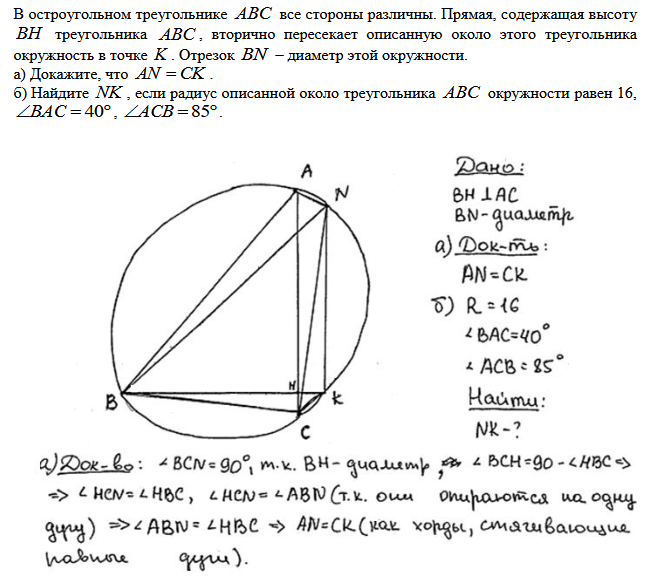 В остроугольном треугольнике ABC все стороны различны. Прямая, содержащая высоту
BH треугольника ABC, вторично пересекает описанную около этого треугольника
окружность в точке K. Отрезок BN – диаметр этой окружности.
а) Докажите, что AN = CK.
б) Найдите NK, если радиус описанной около треугольника ABC окружности равен 16,
∠BAC = 40°, ∠ACB = 85°.
A
N
B
H
K
C
Дано:
BH⊥AC
BN-диаметр
а) Док-ть:
AN=CK
б) R=16
∠BAC=40°
∠ACB=85°
Найти:
NK-?
а) Док-во: ∠BCN=90°, т.к. BH-диаметр, ∠BCH=90-∠HBC=>
=> ∠HCN=∠HBC, ∠HCN=∠ABN (т.к. они опираются на одну
дугу) =>∠ABN=∠HBC => AN=CK (как хорды, стягивающие
равные дуги).